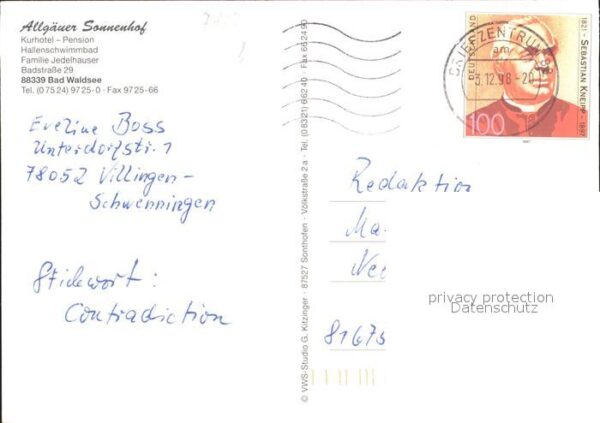 Allgäuer Sonnenhof
Kurhotel – Pension
Hallenschwimmbad
Familie Jedelhauser
Badstraße 29
88339 Bad Waldsee
Tel. (0 75 24) 97 25-0 · Fax 97 25-66
Eveline Boss
Unterdorfstr. 1
78052 Villingen-
Schwenningen
Stichwort:
Contradiction
© VWS-Studio G. Kitzinger · 87527 Sonthofen · Völkstraße 2 a · Tel. (0 83 21) 6 62 40 · Fax 66 24 90
BRIEFZENTRUM
am
3.12.98-20
DEUTSCHLAND
1821 - SEBASTIAN KNEIPP - 1897
100
1997
Redaktion
Ma
81673
privacy protection
Datenschutz